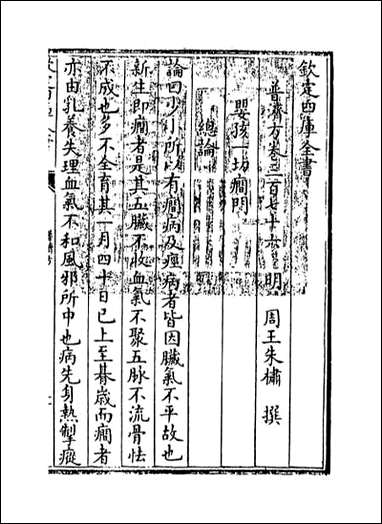 欽定四庫全書
普濟方卷三百七十六 明 周王朱橚 撰
嬰孩一切癎門
總論
論曰少小所以有癎病及痙病者皆因臟氣不平故也
新生即癎者是其五臟不收血氣不聚五脉不流骨怯
不成也多不全育其一月四十日已上至朞歲而癎者
亦由乳養失理血氣不和風邪所中也病先身熱掣瘲